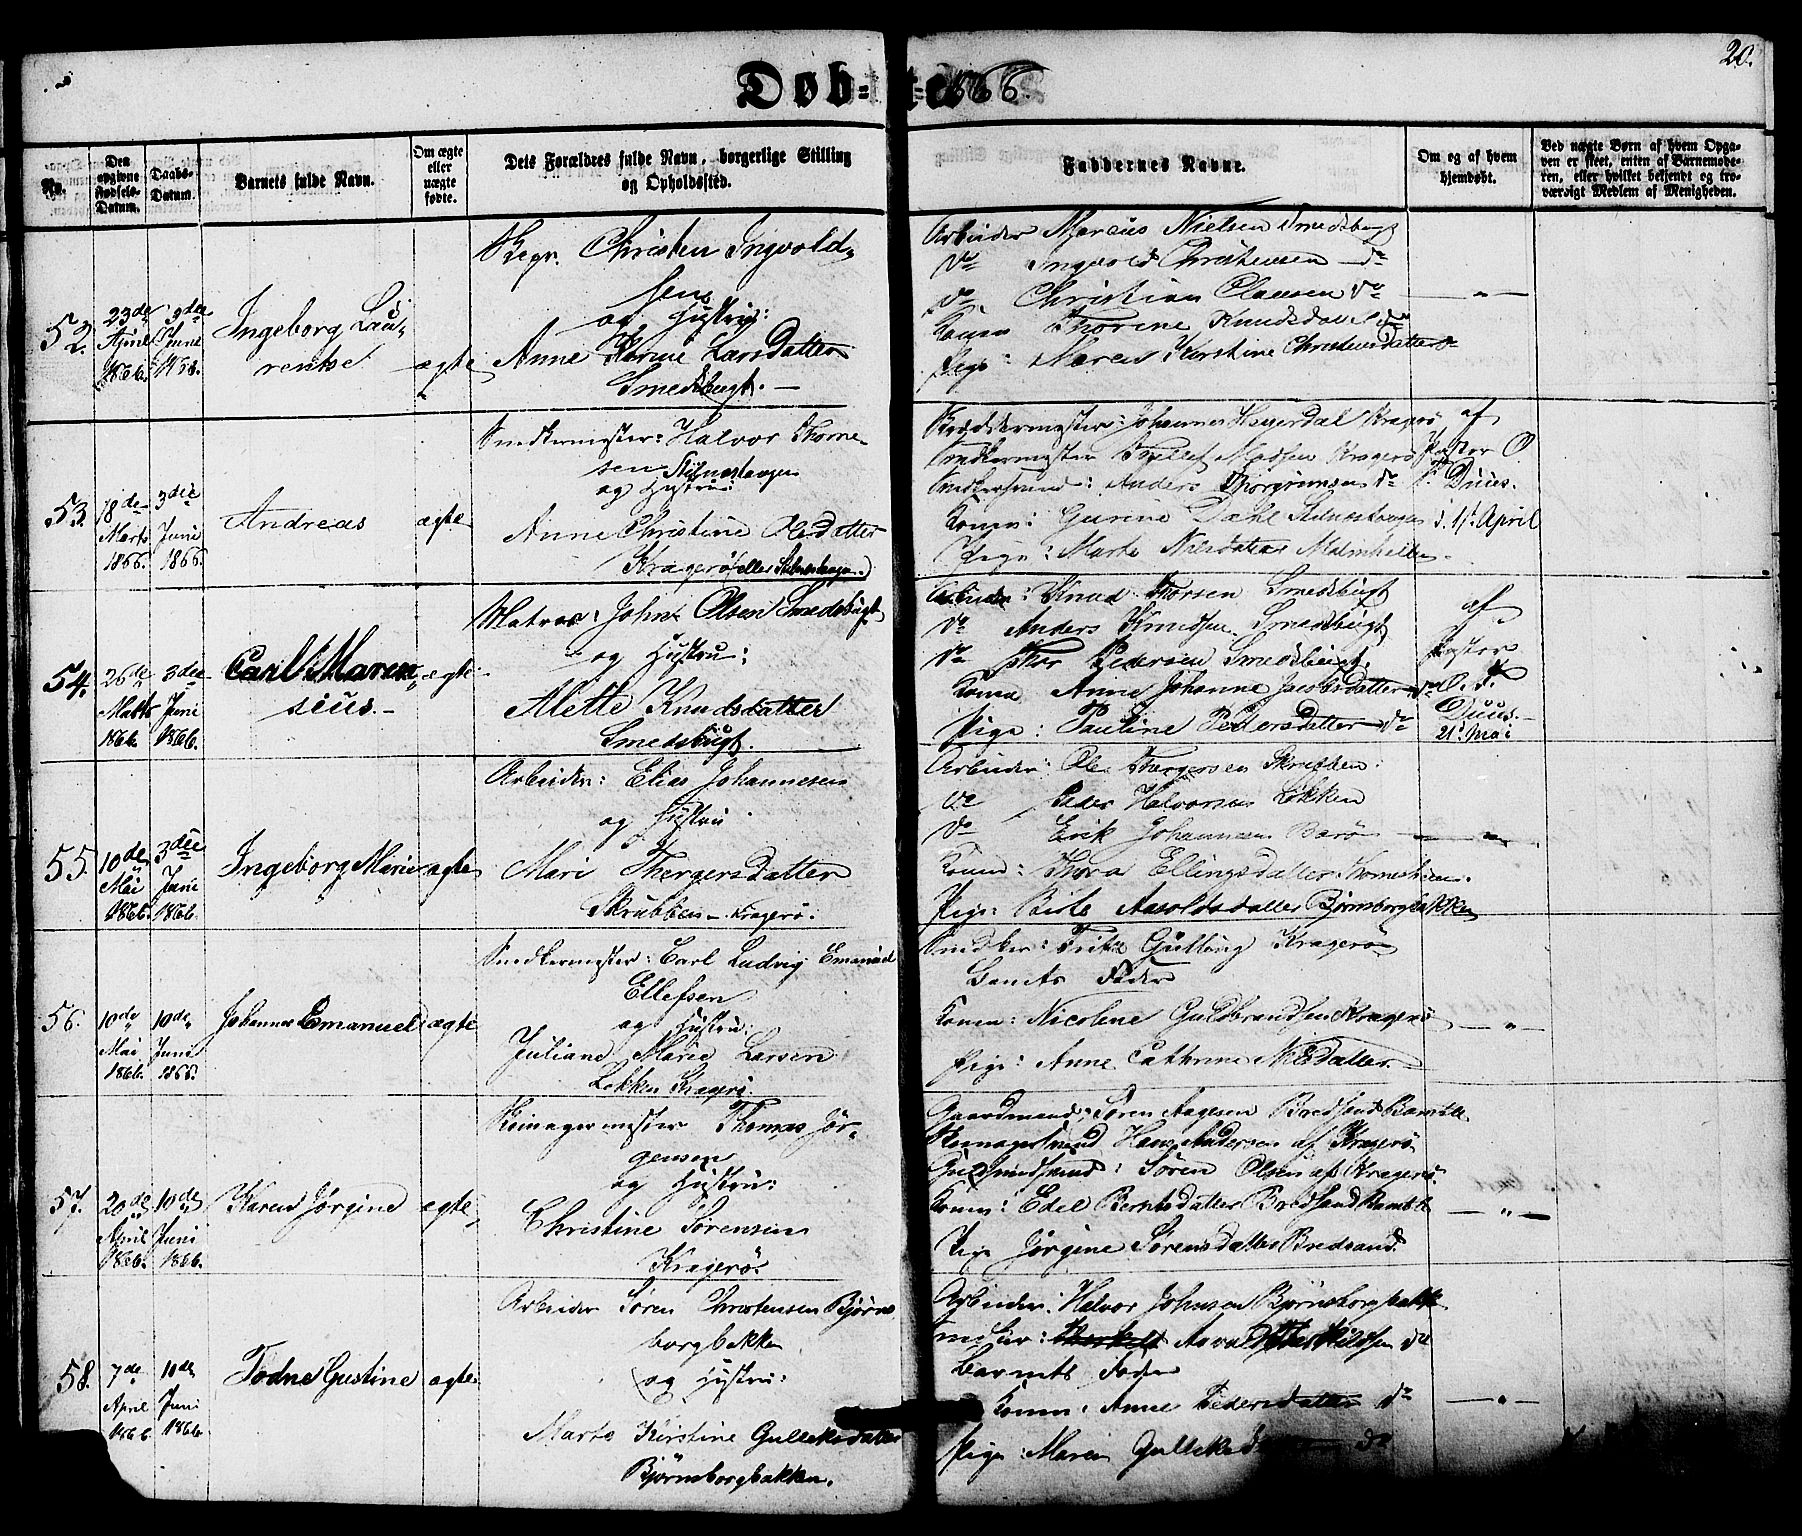 20.
Døbte 1866.
No.
Den opgivne Fødsels-Datum.
Daabs-Datum.
Barnets fulde Navn.
Om ægte eller uægte fødte.
Dets Forældres fulde Navn, borgerlige Stilling og Opholdssted.
Faddernes Navne.
Om og af hvem hjemdøbt.
Ved uægte Børn af hvem Opgaven er skeet, enten af Barnemoderen, eller hvilket bekjendt og troværdigt Medlem af Menigheden.
52.
23de April 1866.
3die Juni
Ingeborg Lau-
rentse
ægte
Christen Ingvold-
sen
og Hustru:
Anne Karine Larsdatter
Smedsbugt. —
Arbeider Marcus Nielsen Smedsbugt
do Ingvold Christensen do
do Christian Clausen do
Kone Thorine Knudsdatter do
Pige: Maren Kirstine Christensdatter do
— " —
53.
18de Marts 1866.
3die Juni 1866.
Andreas
ægte
Snedkermester: Halvor Thome-
sen
og Hustru:
Anne Christine Olsdatter
Kragerø (eller
Johannes Kragerø
Snedkermester Madsen Kragerø
Snedkersvend: Anders Thorgrimsen do
Kone: Gurine Dahl
Pige: Marte Nilsdatter
af
Pastor O.
Duus.
d. 17. April
54.
26de Marts 1866.
3die Juni 1866.
Carl Maren-
sius.
ægte
Matros: John Olsen Smedsbugt
og Hustru:
Alette Knudsdatter
Smedsbugt.
Arbeider: Knud Thorsen Smedsbugt
do Anders Knudsen Smedsbugt
do Thor Pedersen Smedsbugt.
Kone Anne Johanne Jacobsdatter do
Pige: Pauline Pedersdatter do
af
Pastor
O. F.
Duus.
21. Mai
55.
10de Mai 1866.
3die Juni 1866.
Ingeborg Marie
ægte
Arbeider: Elias Johannesen
og Hustru
Mari Thergersdatter
Skrubben – Kragerø.
Arbeider: Ole Thergersen Skrubben
do Peder Halvorsen Løkken
do Erik Johannesen Barø
Kone: Thora Ellingsdatter
Pige: Birte Aasoldsdatter Bjørnsborgbakken
— " —
56.
10de Mai 1866.
10de Juni 1866.
Johannes Emanuel
ægte
Snedkermester: Carl Ludvig Emanuel
Ellefsen
og Hustru:
Juliane Marie Larsen
Løkken Kragerø
Snedker: Fritz Gütling Kragerø
Barnets Fader
Kone: Nicoline Guldbrandsen Kragerø
Pige: Anne Cathrine Nilsdatter.
— " —
57.
20de April 1866.
10de Juni 1866.
Karen Jørgine
ægte
Thomas Jør-
gensen
og Hustru:
Christine Sørensen
Kragerø.
Gaardmand: Søren Aagesen Bredsand Bamble
Hans Andersen af Kragerø
Guldsmedsvend: Søren Olsen af Kragerø.
Kone: Edel Berntsdatter Bredsand Bamble
Pige Jørgine Sørensdatter Bredsand.
— " —
58.
7de April 1866
10de Juni 1866
Todne Gustine
ægte
Arbeider Søren Christensen Bjørns-
borgbakken
og Hustru:
Marte Kirstine Gulleksdatter
Bjørnsborgbakken.
Arbeider: Halvor Johnsen Bjørnsborgbakk
do
Barnets Fader
Kone: Anne Pedersdatter do
Pige: Maren do
— " —